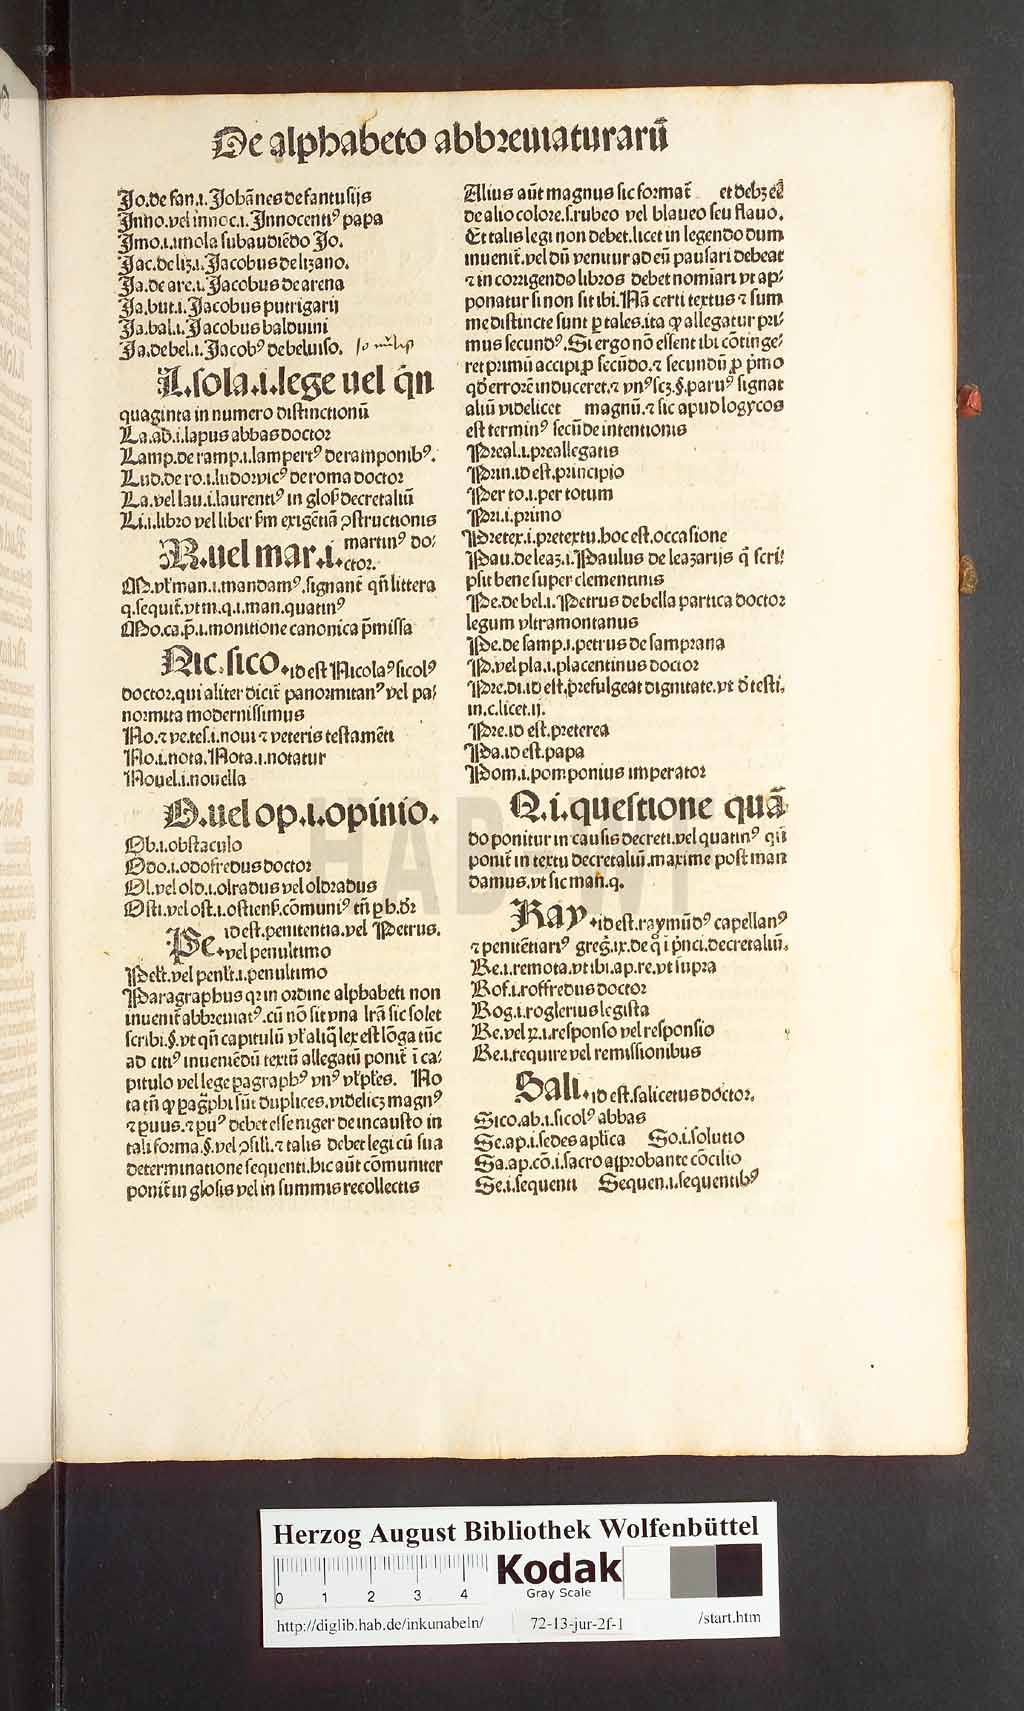 De alphabeto abbreuiaturarū
Jo.de fan.i. Johānes de fantusijs
Inno.vel innoc.i. Innocentiꝰ papa
Imo.i.imola subaudiēdo Jo.
Jac.de liz.i. Jacobus de lizano.
Ja.de are.i. Jacobus de arena
Ja.but.i. Jacobus putrigarij
Ja.bal.i. Jacobus balduini
Ja.de bel.i. Jacobꝰ de beluiso.
L.sola.i.lege uel q̄n
quaginta in numero distinctionū
La.ab.i.lapus abbas doctor
Lamp.de ramp.i.lampertꝰ de ramponibꝰ.
Lud.de ro.i.ludovicꝰ de roma doctor
La.vel lau.i.laurentiꝰ in glos̄ decretaliū
Li.i.libro vel liber s̄m exigētiā ꝯstructionis
M.uel mar.i. martinꝰ do-
ctor.
M.vł man.i.mandamꝰ.signant̄ qn̄ littera
q.sequit̄.vt m.q.i.man.quatinꝰ
Mo.ca.p̄.i.monitione canonica p̄missa
Nic.sico.id est Nicolaꝰ sicolꝰ
doctor.qui aliter dicit̄ panormitanꝰ vel pa-
normita modernissimus
No.⁊ ve.tes.i.noui ⁊ veteris testamēti
No.i.nota.Nota.i.notatur
Nouel.i.nouella
O.uel op.i.opinio.
Ob.i.obstaculo
Odo.i.odofredus doctor
Ol.vel old.i.olradus vel oldradus
Osti.vel ost.i.ostiens̄.cōmuniꝰ tn̄ ꝑ h.dr̄
Pe.id est.penitentia.vel Petrus.
vel penultimo
Pełt.vel penłt.i.penultimo
Paragraphus qꝛ in ordine alphabeti non
inuenit̄ abbreuiatꝰ.cū nō sit vna lr̄a sic solet
scribi.§.vt qn̄ capitulū vł aliq̄ lex est lōga tūc
ad citiꝰ inueniēdū textū allegatū ponit̄ ī ca-
pitulo vel lege ꝑagraphꝰ vnꝰ vł pl̄es. No
ta tn̄ ꝙ ꝑag̃phi sūt duplices.videlicꝫ magnꝰ
⁊ ꝑuus.⁊ ꝑuꝰ debet esse niger de incausto in
tali forma.§.vel ꝯsiłi.⁊ talis debet legi cū sua
determinatione sequenti.hic aūt cōmuniter
ponit̄ in glosis vel in summis recollectis
Alius aūt magnus sic format̄ et debꝫ eē
de alio colore.s.rubeo vel blaueo seu flauo.
Et talis legi non debet.licet in legendo dum
inuenit̄.vel dū venitur ad eū pausari debeat
⁊ in corrigendo libros debet nominari vt ap-
ponatur si non sit ibi. Nā certi textus ⁊ sum
me distincte sunt ꝑ tales.ita ꝙ allegatur pri-
mus secundꝰ. Si ergo nō essent ibi cōtinge-
ret primū accipi ꝓ secūdo.⁊ secundū ꝓ p̄mo
qd̄ errorē induceret.⁊ vnꝰ scꝫ.§.paruꝰ signat
aliū videlicet magnū.⁊ sic apud logycos
est terminꝰ secūde intentionis
Preal.i.preallegatis
Prin.id est.principio
Per to.i.per totum
Pri.i.primo
Pretex.i.pretextu.hoc est.occasione
Pau.de leaz.i. Paulus de leazarijs q̄ scri-
psit bene super clementinis
Pe.de bel.i. Petrus de bella partica doctor
legum vltramontanus
Pe.de samp.i.petrus de samprana
P.vel pla.i.placentinus doctor
Pre.di.id est.prefulgeat dignitate.vt d̄ testi.
in.c.licet.ij.
Pre.id est.preterea
Pa.id est.papa
Pom.i.pomponius imperator
Q.i.questione quā
do ponitur in causis decreti.vel quatinꝰ qn̄
ponit̄ in textu decretaliū.maxime post man
damus.vt sic man.q.
Ray.id est.raymūdꝰ capellanꝰ
⁊ penitētiariꝰ greg̃.ix.de q̊ ī p̄nci.decretaliū.
Re.i.remota.vt ibi.ap.re.vt supra
Rof.i.roffredus doctor
Rog.i.roglerius legista
Re.vel ꝶ.i.responso vel responsio
Re.i.require vel remissionibus
Sali.id est.salicetus doctor.
Sico.ab.i.sicolꝰ abbas
Se.ap.i.sedes aplica So.i.solutio
Sa.ap.cō.i.sacro approbante cōcilio
Se.i.sequenti Sequen.i.sequentibꝰ
HAB-WF
Herzog August Bibliothek Wolfenbüttel
0 1 2 3 4
Kodak
Gray Scale
http://diglib.hab.de/inkunabeln/ 72-13-jur-2f-1 /start.htm